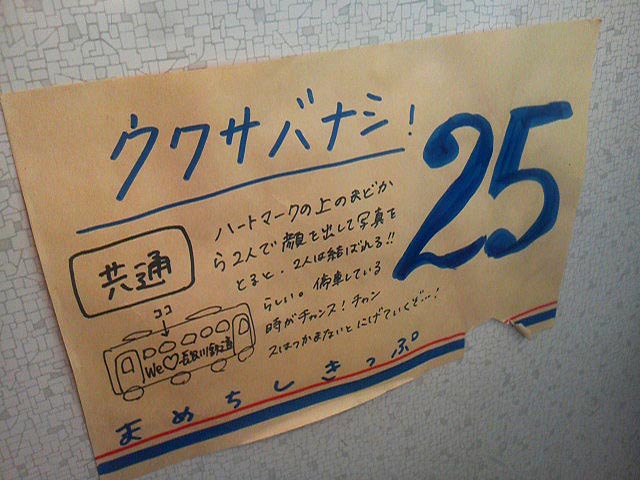 ウワサバナシ!
25
共通
ハートマークの上のまどか
ら2人で顔を出して写真を
とると、2人は結ばれる!!
らしい。停車している
時がチャンス!チャン
スはつかまないとにげていくぞ…!
ココ
We♡長良川鉄道
まめちしきっぷ